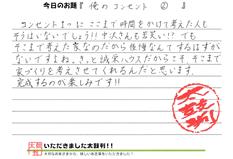 今日のお題『俺のコンセント ②』
コンセント1つに ここまで時間をかけて考えた人も
そうはいないでしょう!! 中沢さんも苦笑い!? でも
そこまで考えた家なのだから後悔なんてするはずが
ないですよね。きっと誠栄ハウスだからこそ そこまで
家づくりを考えさせてくれるんだと思います。
完成するのが楽しみです!!
太鼓判
いただきました太鼓判!!